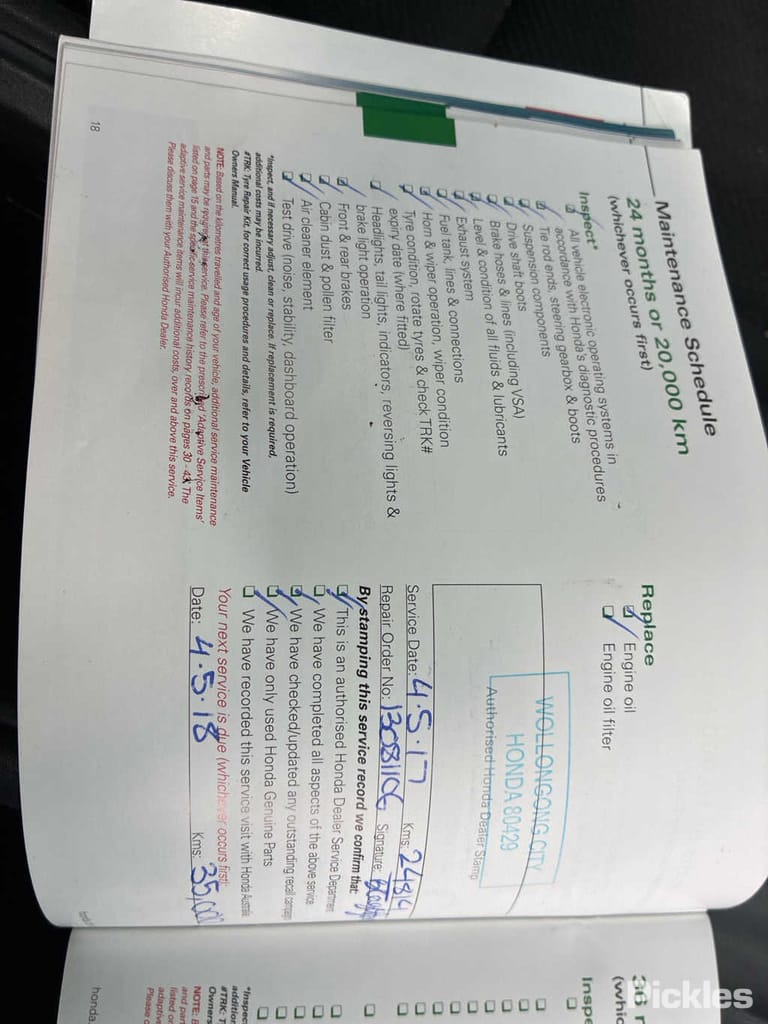 Maintenance Schedule
24 months or 20,000 km
(whichever occurs first)
Inspect*
All vehicle electronic operating systems in
accordance with Honda's diagnostic procedures
Tie rod ends, steering gearbox & boots
Suspension components
Drive shaft boots
Brake hoses & lines (including VSA)
Level & condition of all fluids & lubricants
Exhaust system
Fuel tank, lines & connections
Horn & wiper operation, wiper condition
Tyre condition, rotate tyres & check TRK#
expiry date (where fitted)
Headlights, tail lights, indicators, reversing lights &
brake light operation
Front & rear brakes
Cabin dust & pollen filter
Air cleaner element
Test drive (noise, stability, dashboard operation)
*Inspect, and if necessary adjust, clean or replace. If replacement is required,
additional costs may be incurred.
#TRK: Tyre Repair Kit, for correct usage procedures and details, refer to your Vehicle
Owners Manual.
NOTE: Based on the kilometres travelled and age of your vehicle, additional service maintenance
and parts may be required at this service. Please refer to the prescribed 'Adaptive Service Items'
listed on page 15 and the specific service maintenance history records on pages 30 - 43. The
adaptive service maintenance items will incur additional costs, over and above this service.
Please discuss them with your Authorised Honda Dealer.
18
Replace
Engine oil
Engine oil filter
WOLLONGONG CITY
HONDA 80429
Authorised Honda Dealer Stamp
Service Date: 4.5.17 Kms: 24814
Repair Order No: 13081106 Signature:
By stamping this service record we confirm that:
This is an authorised Honda Dealer Service Department
We have completed all aspects of the above service
We have checked/updated any outstanding recall campaign
We have only used Honda Genuine Parts
We have recorded this service visit with Honda Australia
Your next service is due (whichever occurs first):
Date: 4.5.18 Kms: 35,000
36 m
(whic
Inspe
*Inspec
addition
#TRK: T
Owners
NOTE: B
and part
listed or
adaptive
Please d
honda.
Pickles